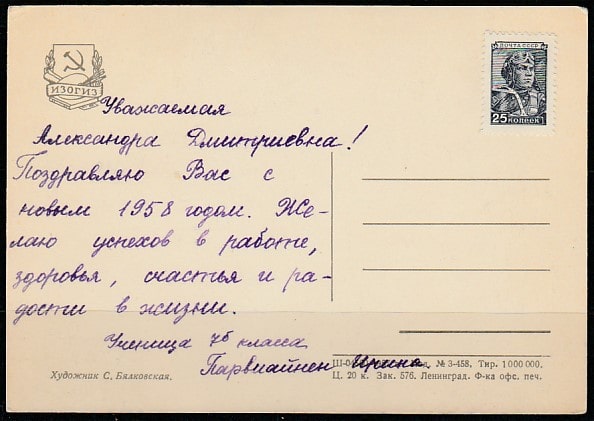 ИЗОГИЗ
ПОЧТА СССР
25 КОПЕЕК
Уважаемая
Александра Дмитриевна!
Поздравляю Вас с
новым 1958 годом. Же-
лаю успехов в работе,
здоровья, счастья и ра-
дости в жизни.
Ученица 7б класса
Парвиайнен Ирина.
Художник С. Бялковская.
№ 3-458, Тир. 1 000 000.
Ц. 20 к. Зак. 576. Ленинград. Ф-ка офс. печ.